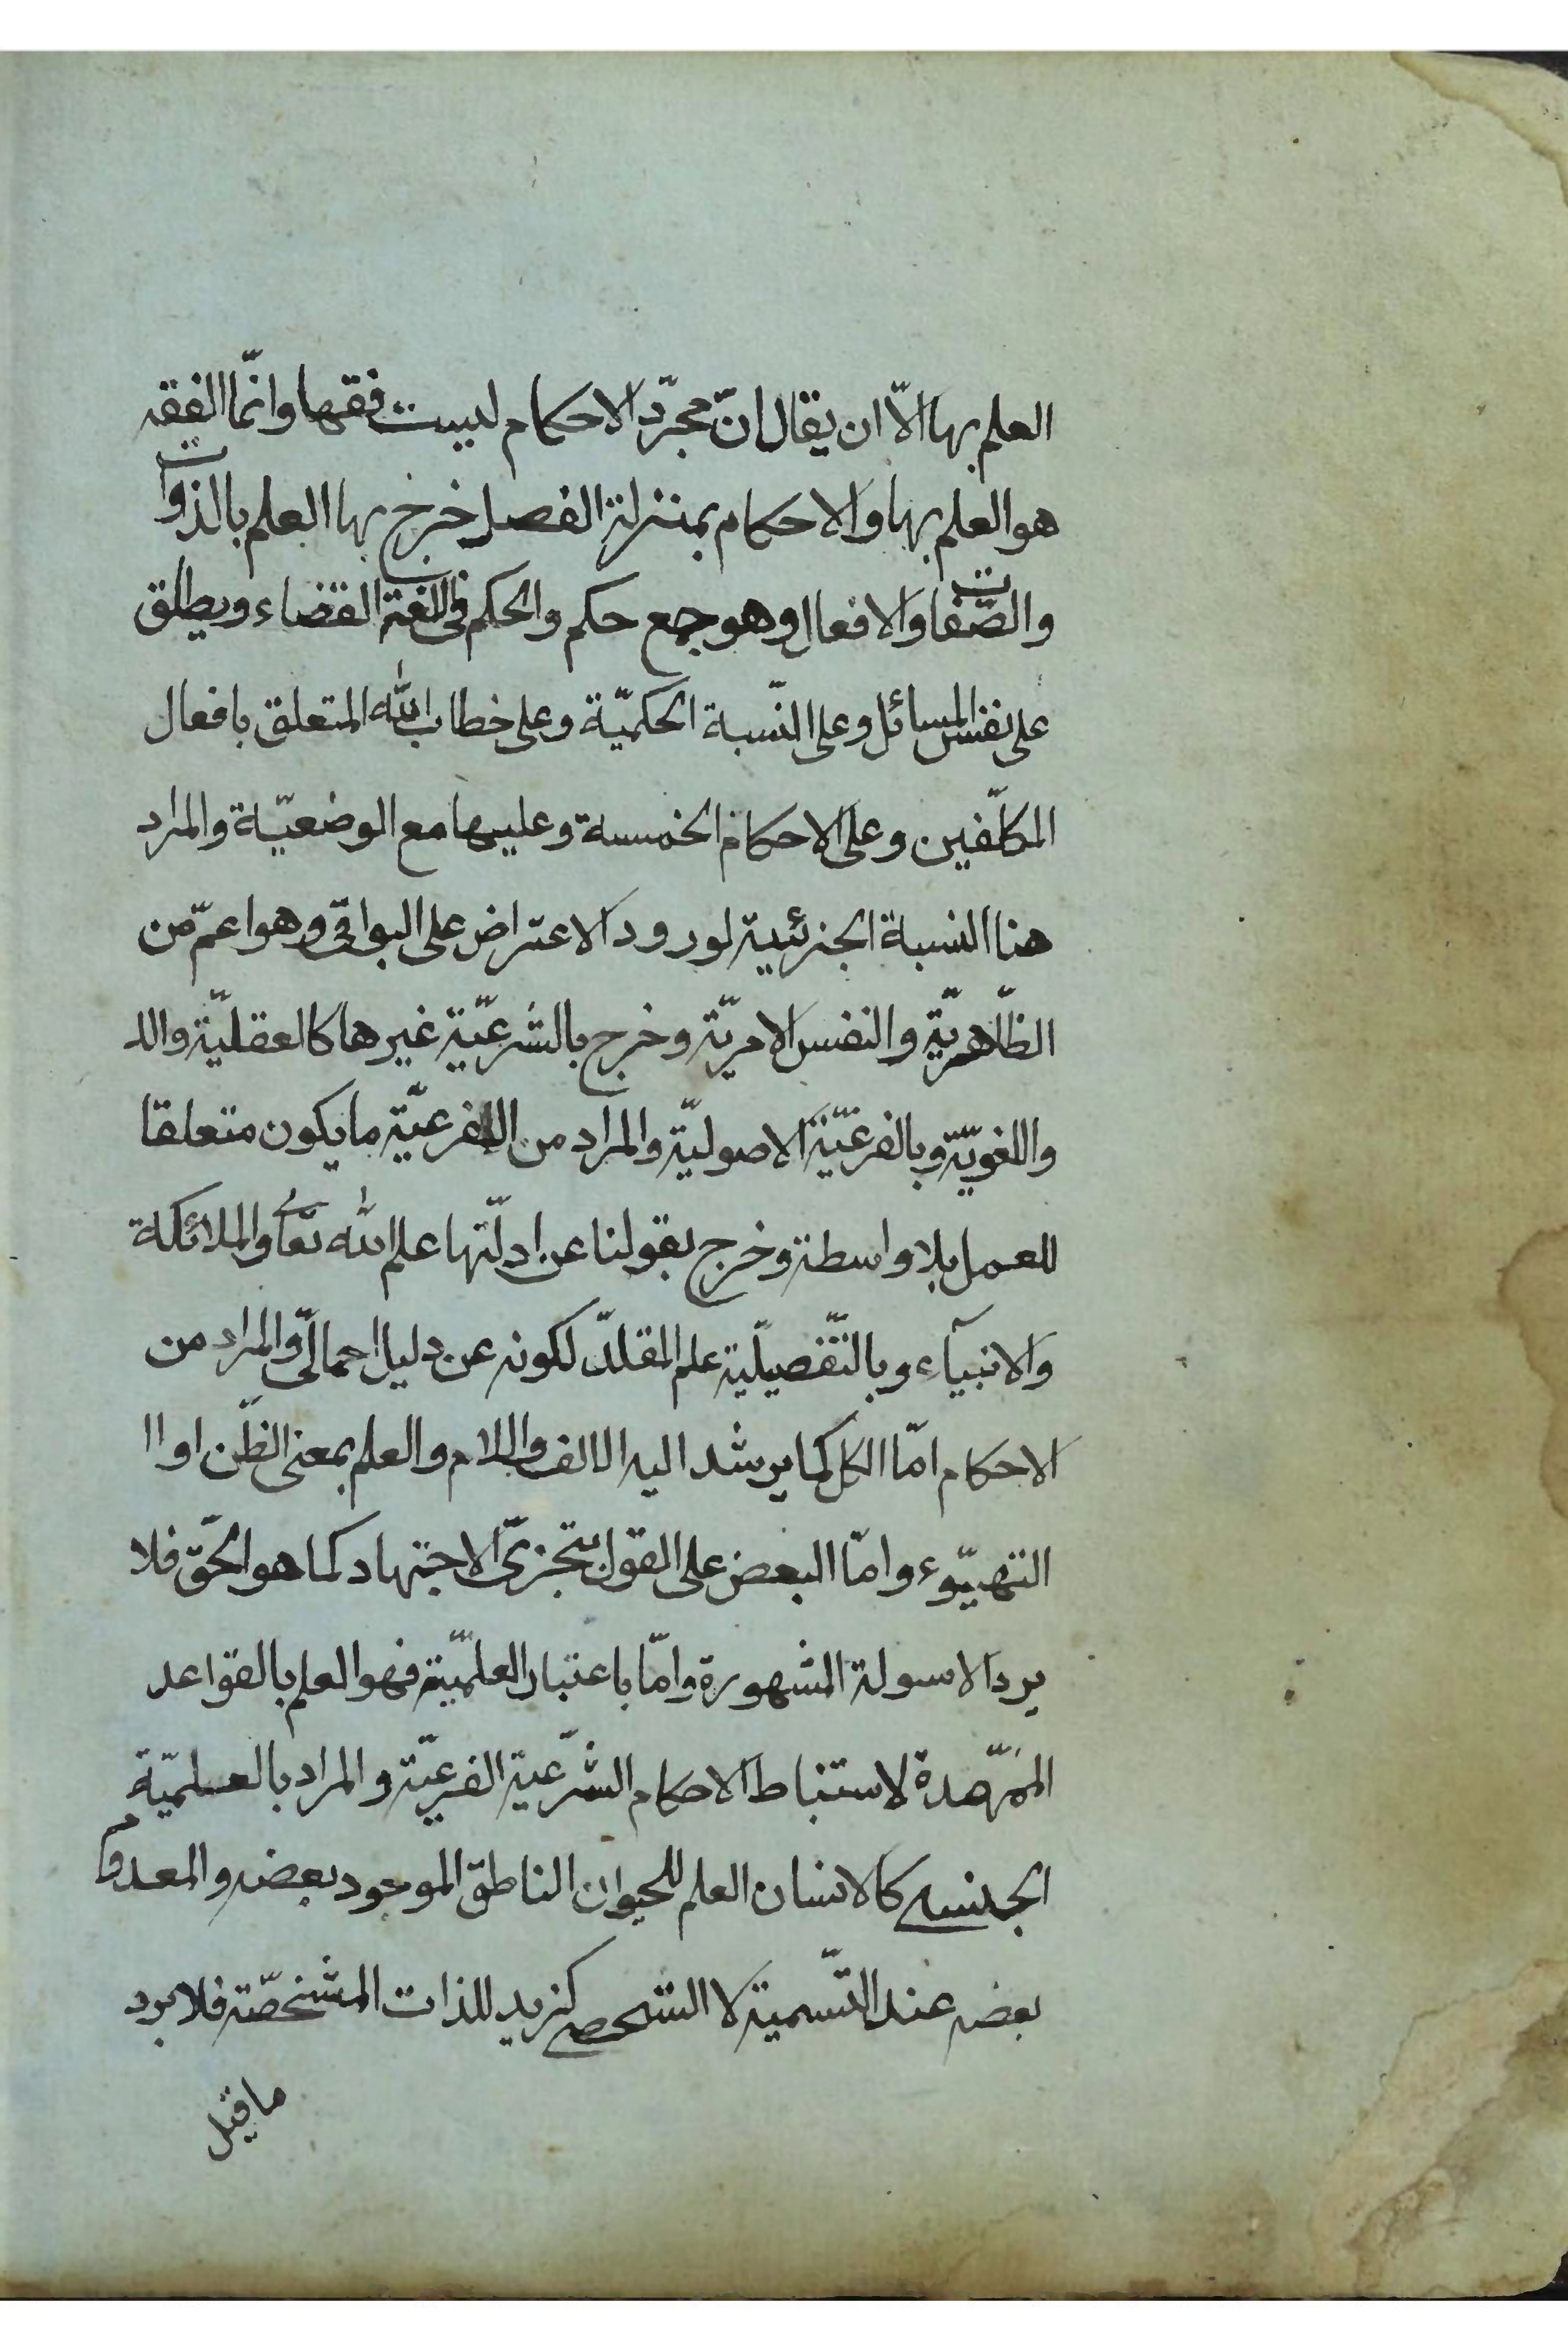 العلم بها الّا ان يقال انّ مجرّد الاحكام ليست فقها وانّما الفقه
هو العلم بها والاحكام بمنزلة الفصل خرج بها العلم بالذوات
والصّفات والافعال وهو جمع حكم والحكم فى اللغة القضاء ويطلق
على نفس المسائل وعلى النّسبة الحكميّة وعلى خطاب الله المتعلق بافعال
المكلّفين وعلى الاحكام الخمسة وعليها مع الوضعيّة والمراد
هنا النسبة الجزئية لورود الاعتراض على البواقى وهو اعمّ من
الظّاهريّة والنفس الامريّة وخرج بالشرعيّة غيرها كالعقليّة وال
واللغويّة وبالفرعيّة الاصوليّة والمراد من الفرعيّة ما يكون متعلقا
للعمل بلا واسطة وخرج بقولنا عن ادلّتها علم الله تعالى والملائكة
والانبيآء وبالتّفصيلّية علم المقلدّ لكونه عن دليل اجمالىّ والمراد من
الاحكام امّا الكل كما يرشد اليه الالف واللام والعلم بمعنى الظّن او ا
التهيّوء وامّا البعض على القول بتجزىّ الاجتهاد كما هو الحقّ فلا
يرد الاسولة المشهورة وامّا باعتبار العلميّة فهو العلم بالقواعد
الممّهدة لاستنباط الاحكام الشرّعية الفرعيّة والمراد بالعلميّة
الجنسى كالانسان العلم للحيوان الناطق الموجود بعضه والمعدوم
بعضه عند التّسمية لا الشخصى كزيد للذات المشخصّة فلا يرد
ما قيل